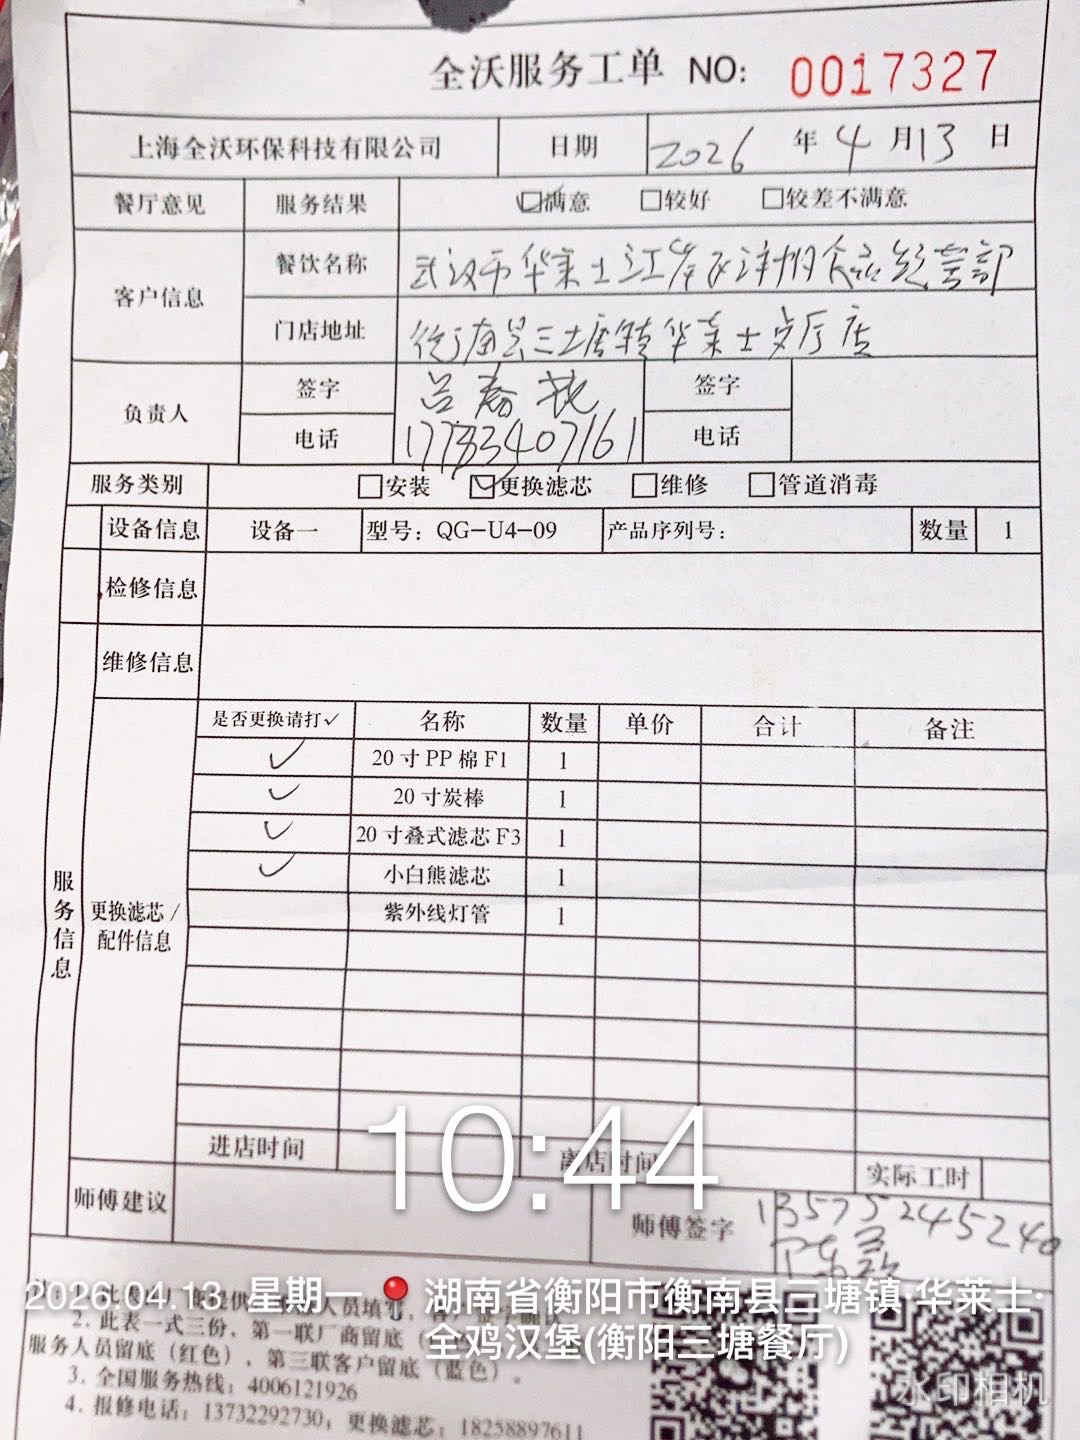 全沃服务工单 NO: 0017327
上海全沃环保科技有限公司 日期 2026 年 4 月 13 日
餐厅意见 服务结果 ☑满意 □较好 □较差不满意
客户信息 餐饮名称 武汉市华莱士江岸区津州食品经营部
门店地址 衡南县三塘镇华莱士餐厅店
负责人 签字 吕春 签字
电话 17733407161 电话
服务类别 □安装 ☑更换滤芯 □维修 □管道消毒
设备信息 设备一 型号: QG-U4-09 产品序列号: 数量 1
检修信息
维修信息
服务信息
更换滤芯/
配件信息
是否更换请打✓ 名称 数量 单价 合计 备注
✓ 20寸PP棉F1 1
✓ 20寸炭棒 1
✓ 20寸叠式滤芯F3 1
✓ 小白熊滤芯 1
紫外线灯管 1
进店时间 离店时间 实际工时
10:44
师傅建议 师傅签字 13575245240
2026.04.13 星期一 湖南省衡阳市衡南县三塘镇·华莱士·
全鸡汉堡(衡阳三塘餐厅)
2. 此表一式三份,第一联厂商留底
服务人员留底(红色),第三联客户留底(蓝色)。
3. 全国服务热线: 4006121926
4. 报修电话: 13732292730; 更换滤芯: 18258897611
水印相机